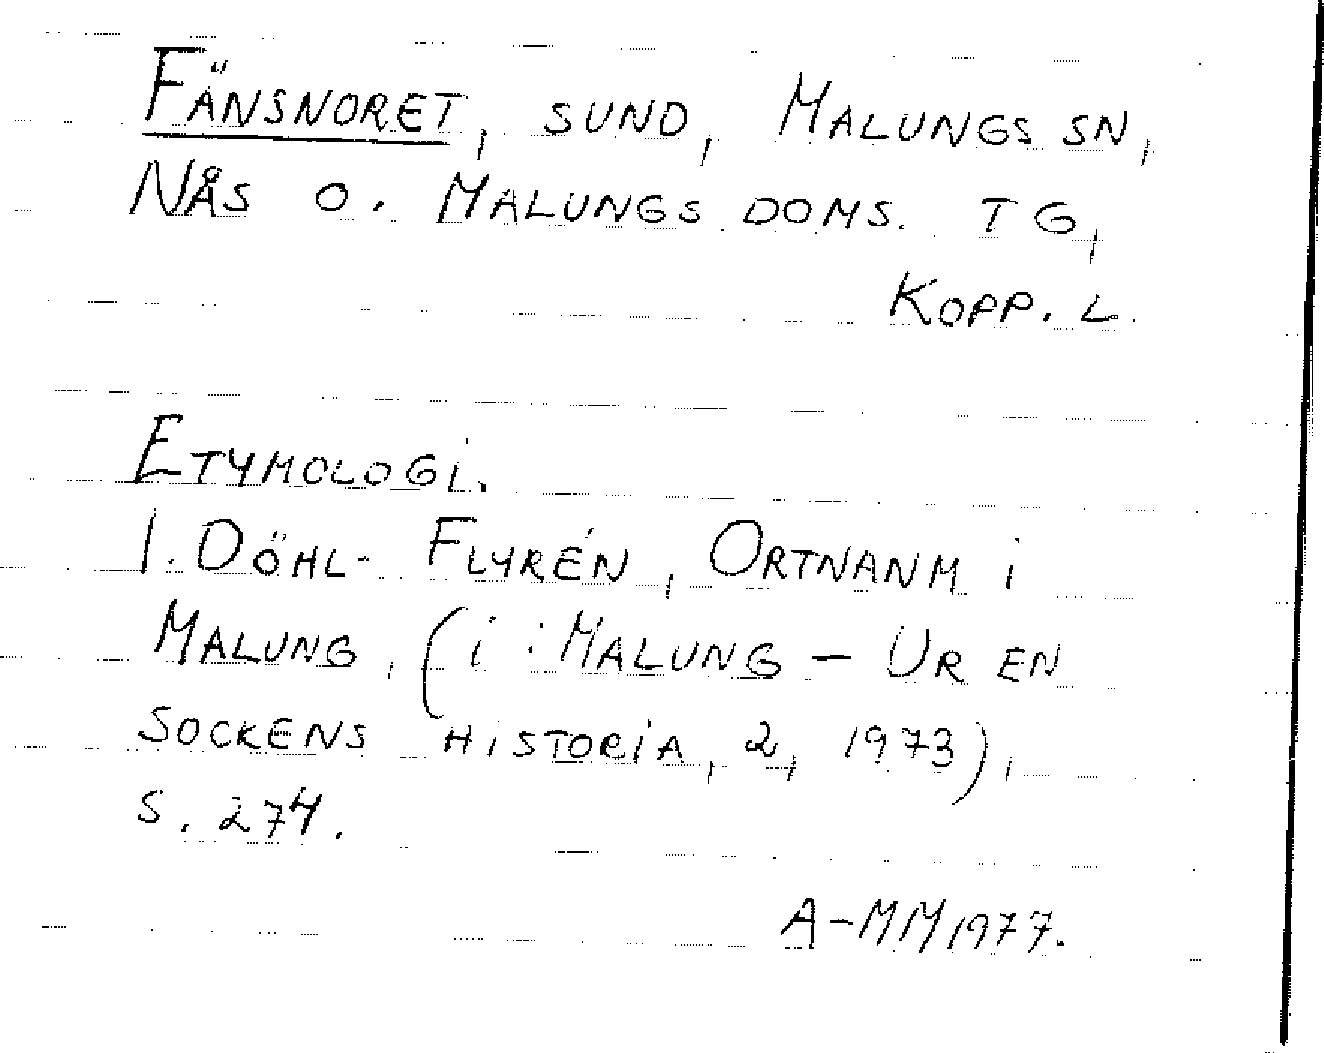 FÄNSNORET, SUND, MALUNGS SN,
NÅS O. MALUNGS DOMS. TG,
KOPP. L.
ETYMOLOGI.
I. DÖHL-FLYRÉN, ORTNAMN i
MALUNG, (i: MALUNG – UR EN
SOCKENS HISTORIA, 2, 1973),
S. 274.
A-MM 1977.